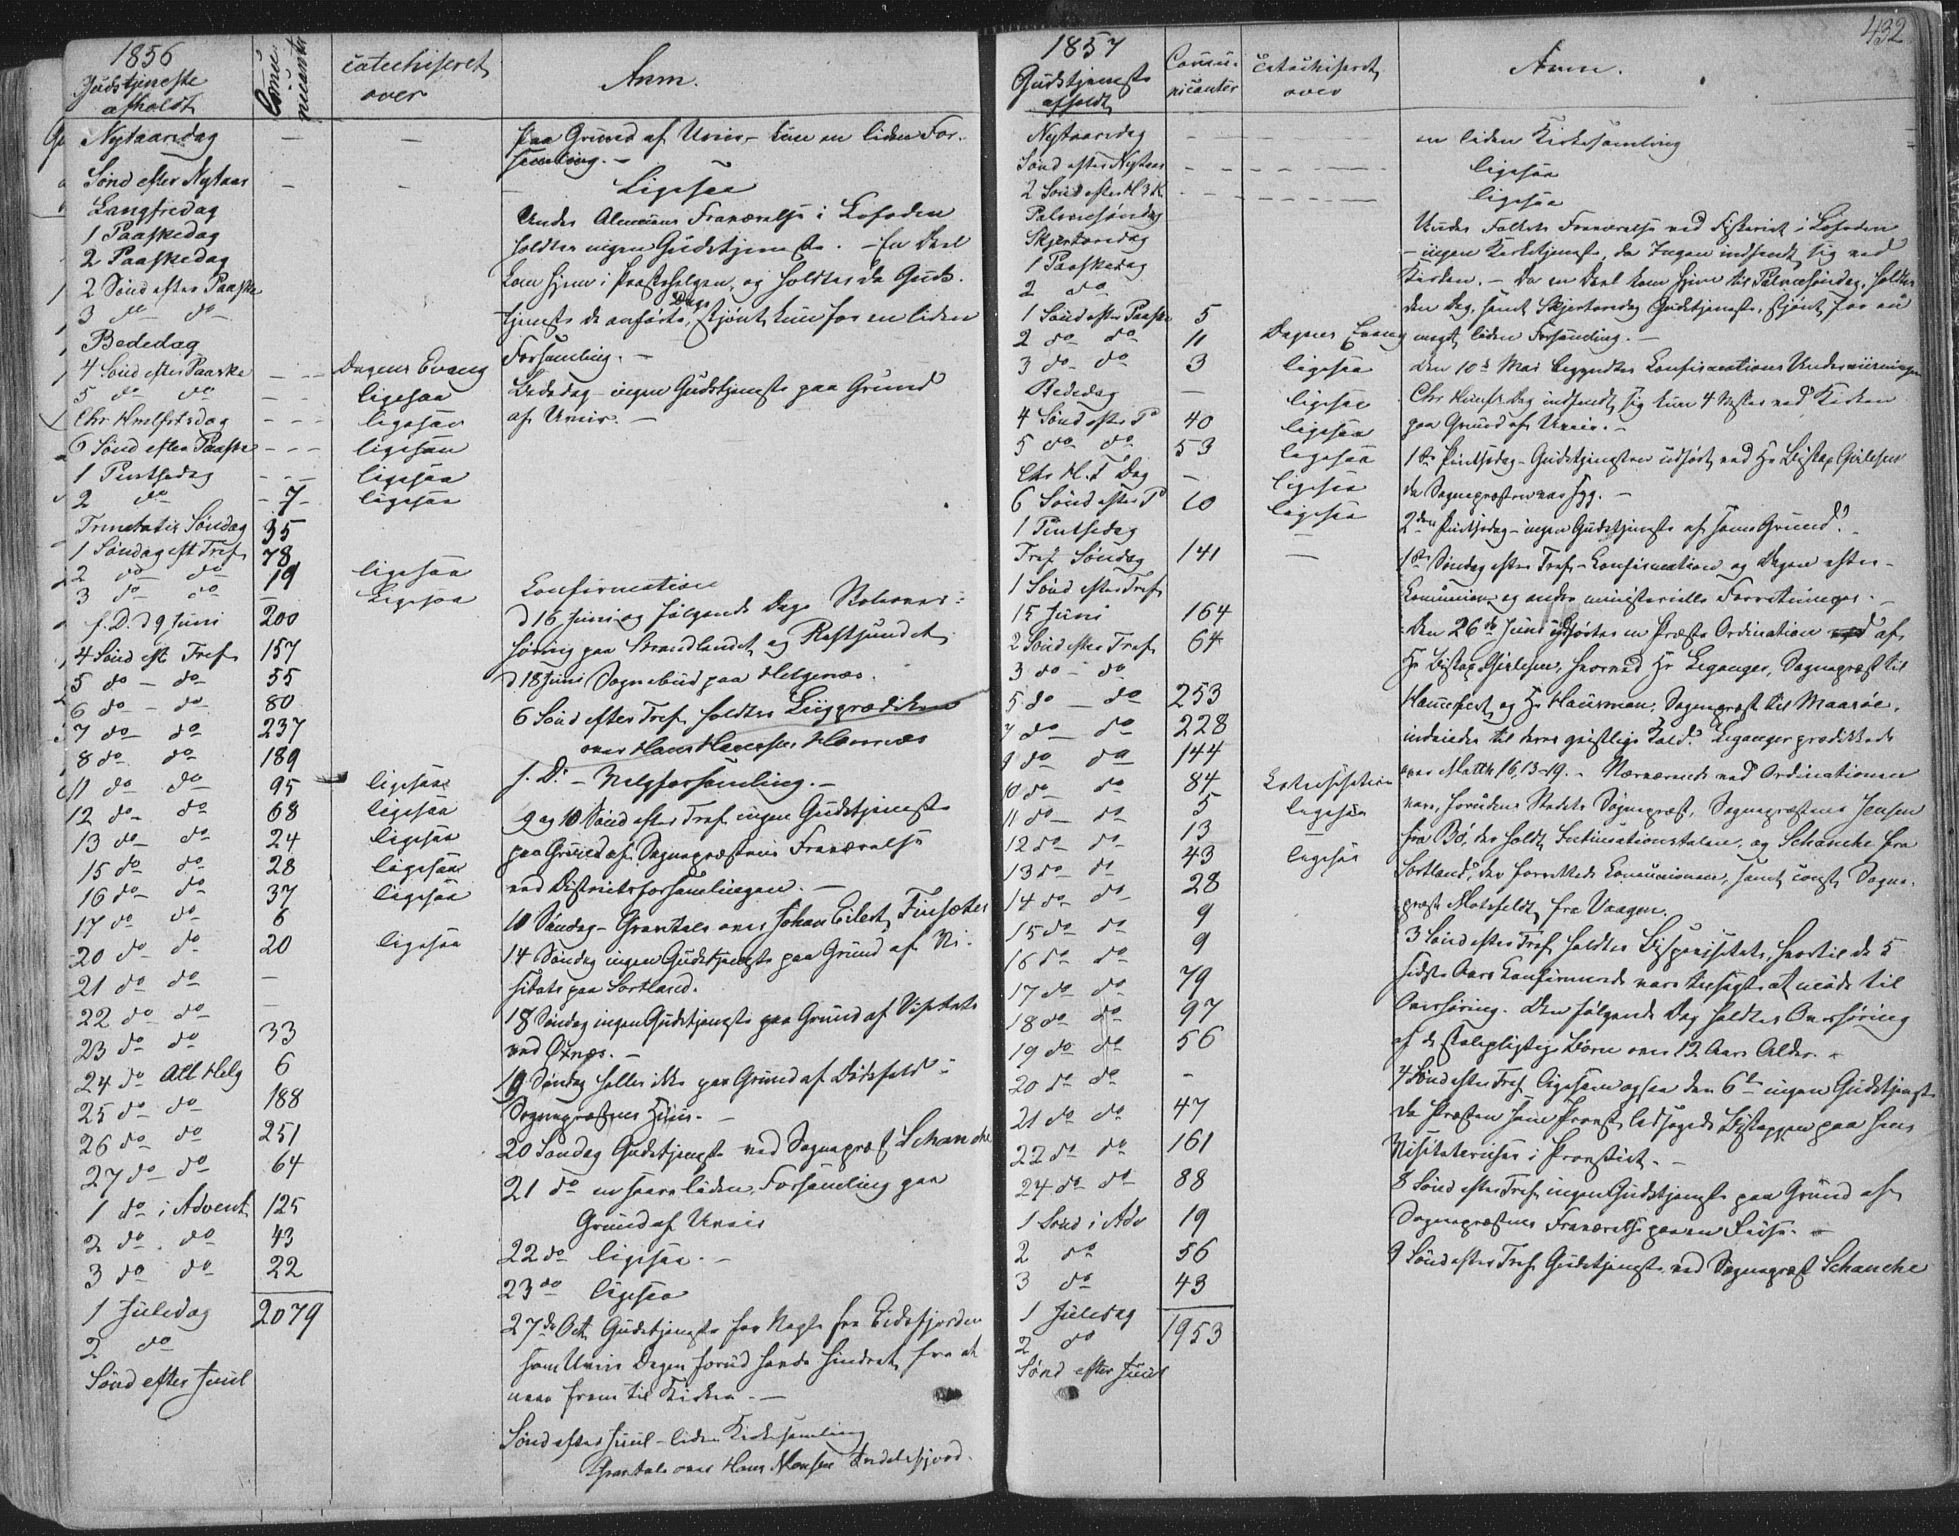 1856
Gudstjeneste
afholdt
Commu
nicanter
catechiseret
over
Anm.
Nytaarsdag - - paa Grund af Uveir, kun en liden For-
samling. -
Sønd efter Nytaar - - Ligesaa
Langfredag
1 Paaskedag
2 Paaskedag
2 Sønd efter Paaske
3 do do
Bededag
4 Sønd efter Paaske - - Dagens Evang
5 do do - - ligesaa
Chr Himlfartsdag - - - ligesaa
6 Sønd efter Paaske - - - ligesaa
1 Pintsedag - - - ligesaa
2 do - 7 - ligesaa
Trinitatis Søndag 35
1 Søndag eft Tref 78
2 do do 19 ligesaa
3 do do - Ligesaa
f. D. d 9 Juni 200
4 Sønd eft Tref 157
5 do - do 55
6 do - do 80
7 do do 237
8 do do 189
11 do do 95 ligesaa
12 do do 68 ligesaa
13 do do 24 ligesaa
15 do do 28 ligesaa
16 do do 37 ligesaa
17 do do 6
20 do do 20 ligesaa
21 do do -
22 do do -
23 do do 33
24 do All Helg 6
25 do do 188
26 do do 251
27 do do 64
1 do i Advent 125
2 do do 43
3 do do 22
1 Juledag 2079
2 do
Sønd efter Juul
Under Almuens Fraværelse i Lofoden
holdtes ingen Gudstjeneste. - En Deel
kom hjem i Paaskehelgen, og holdtes da Guds-
tjeneste de anførte Dage, skjønt kun for en liden
Forsamling. -
Bededag - ingen Gudstjeneste paa Grund
af Uveir. -
Confirmation
d 16 Juni og følgende Dage Skolever-
høring paa Strandlandet og Raftsundet
d 18 Juni Sognebud paa Helgenæs.
6 Sønd efter Tref holdtes Liigprædiken
over Hans Hanssen Hannæs
f. D. - Valgforsamling. -
9 og 10 Sønd efter Tref ingen Gudstjeneste
paa Grund af Sognepræstens Fraværelse
ved Districtsforsamlingen. -
10 Søndag - Gravtale over Johan Eilert Finsæter
14 Søndag ingen Gudstjeneste paa Grund af Vi-
sitats paa Sortland.
18 Søndag ingen Gudstjeneste paa Grund af Visitats
ved Øxnes. -
19 Søndag heller ikke paa Grund af Dødsfald i
Sognepræstens Huus. -
20 Søndag Gudstjeneste ved Sognepræst Schanche
21 do en saare liden Forsamling paa
Grund af Uveir
22 do ligesaa -
23 do ligesaa
27de Oct. Gudstjeneste for Nogle fra Eidsfjorden
som Uveir Dagen forud havde hindret fra at
naae frem til Kirken. -
Sønd efter Juul - liden Kirkesamling
Gravtale over Hans Monsen
1857
432
Gudstjeneste
afholdt
Commu-
nicanter
Catechiseret
over
Anm.
Nytaarsdag - - en liden Kirkesamling
Sønd efter Nytaar - - ligesaa
2 Sønd efter H 3 K - - ligesaa
Palmesøndag
Skjertorsdag
1 Paaskedag
2 do
1 Sønd efter Paaske 5
2 do do 11 Dagens Evang
3 do do 3 ligesaa
Bededag - ligesaa
4 Sønd efter P 40 ligesaa
5 do do 53 ligesaa
Chr H. F Dag - ligesaa
6 Sønd efter P 10 ligesaa
1 Pintsedag
Tref Søndag 141 -
1 Sønd efter Tref
15 Juni 164
2 Sønd efter Tref 64
3 do - do
5 do - do 253
7 do - do 228
9 do do 144
10 do do 84 Catechisation
11 do do 5 ligesaa
12 do do 13
13 do do 43 ligesaa
14 do do 28
15 do do 9
16 do do 9
17 do do 79
18 do do 97
19 do do 56
20 do do -
21 do do 47
22 do do 161
24 do do 88
1 Sønd i Adv 19
2 do 56
3 do 43
1 Juledag
2 do 1953
Sønd efter Juul
Under Folkets Fraværelse ved Fiskeriet i Lofoden
- ingen Kirketjeneste, da Ingen indfandt sig ved
Kirken. - Da en Deel kom hjem til Palmesøndag, holdtes
den Dag, samt Skjertorsdag Gudstjeneste, skjønt for en
meget liden Forsamling. -
Den 10de Mai begyndtes Confirmations Underviisningen
Chr Himf. Dag indfandt sig kun 4 Mster ved Kirken
paa Grund af Uveir. -
1ste Pintsedag - Gudstjenesten udført ved Hr Biskop Gislesen
da Sognepræsten var syg. -
2den Pintsedag - ingen Gudstjeneste af samme Grund.
1ste Søndag efter Tref - Confirmation og Dagen efter -
Communion og andre ministerielle Forretninger. -
Den 26de Juni udførtes en Præste Ordination af
Hr Biskop Gislesen, hvorved Hr Leganger, Sognepræst til
Hammerfest, og Hr Hansman, Sognepræst til Maasøe,
indviedes til deres geistlige Kald. Leganger prædikede
over Matth 16, 13-19. - Nærværende ved Ordinationen
vare, foruden Stedets Sognepræst, Sognepræsterne Jensen
fra Bø, der holdt Intimationstalen, og Schanche fra
Sortland, der forrettede Communionen, samt const. Sogne-
præst Motzfeldt fra Vaagen.
3 Sønd efter Tref holdtes Bispevisitats, hvortil de 5
sidste Aars Confirmerede vare tilsagte at møde til
Overhøring. Den følgende Dag holdtes Overhøring
af de skolepligtige Børn over 12 Aars Alder. -
4 Sønd efter Tref ligesom ogsaa den 6te ingen Gudstjeneste
da Præsten som Provst ledsagede Biskoppen paa hans
Visitatsreise i Provstiet. -
8 Sønd efter Tref ingen Gudstjeneste paa Grund af
Sognepræstens Fraværelse paa en Reise. -
9 Sønd efter Tref Gudstjeneste ved Sognepræst Schanche